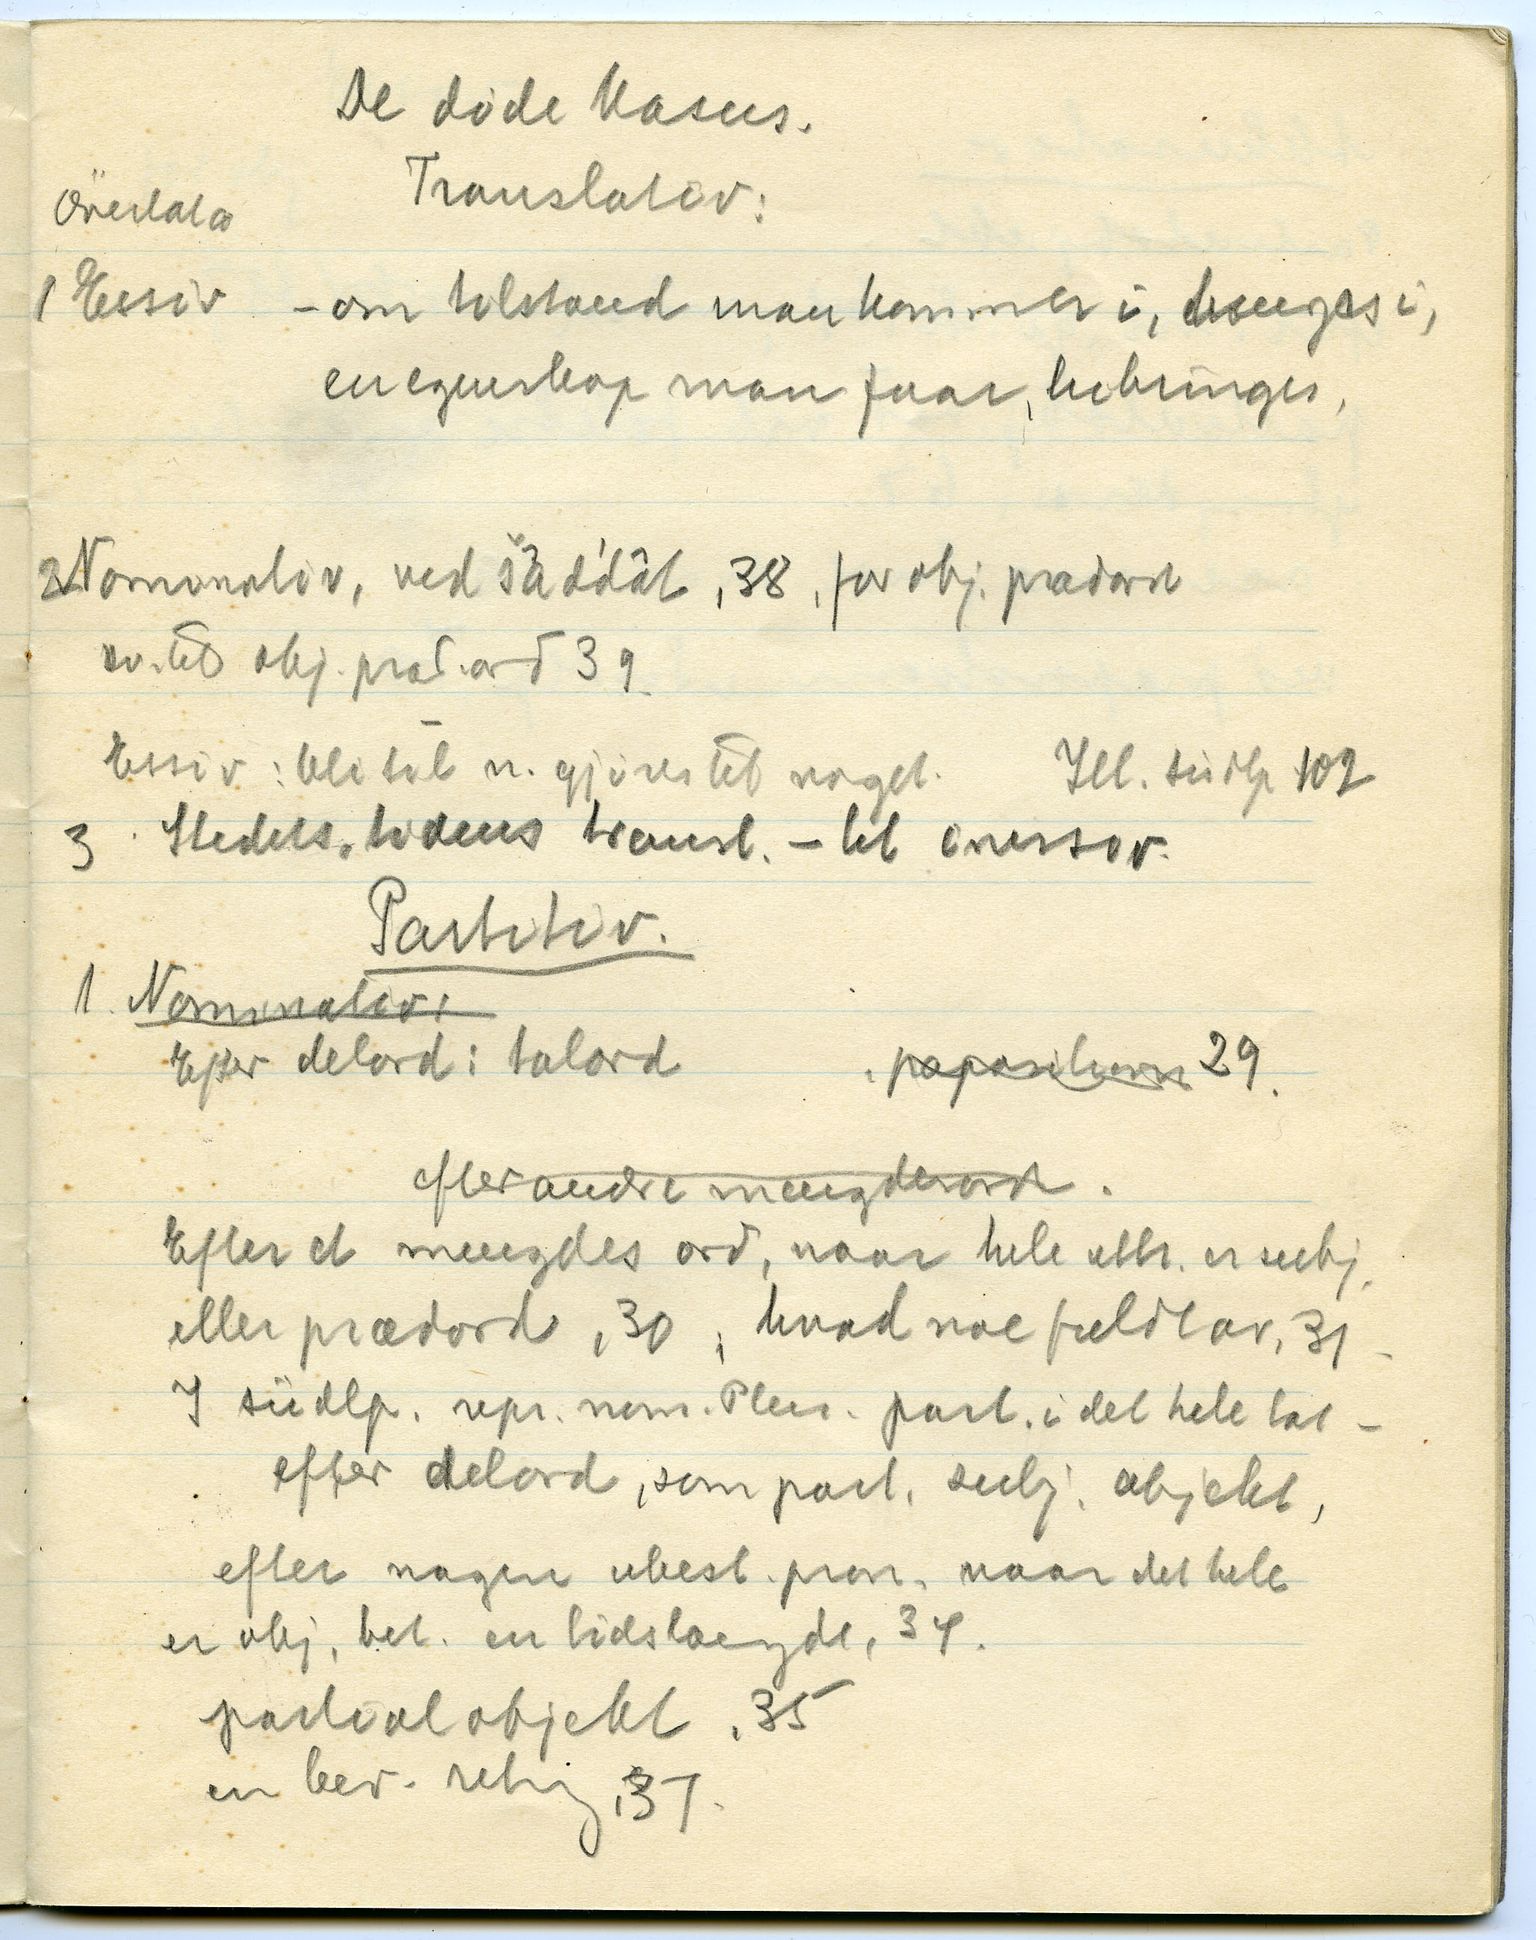 De döde Kasus.
Translativ:
Överlata
1 Essiv - om tilstand man kommer i, i,
en egenskap man faar, bibringes,
2 Nominativ, ved šàd'dât, 38, for obj. prædord
til obj. præd.ord 39.
Essiv: bli til n. gjöres til noget. Ill. südlp 102
3 Stedets, tidens transl. - til inessiv.
Partitiv.
1. Nominativ:
Efter delord: talord 29.
efter andre mengdeord.
Efter et mengdes ord, naar hele uttr. er subj.
eller prædord, 30, hvad noe fuldt av, 31 -
I südlp. repr. nom. Plur. part. i det hele tat -
efter delord, som part. subj. objekt,
efter nogen ubest. pron. naar det hele
er obj. bet. en tidslængde, 34.
partialobjekt, 35
en bev. retng, 37.